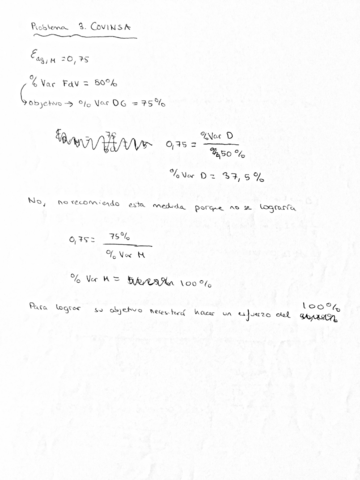 Problema 3. COVINSA
Edg,M = 0,75
% Var FdV = 50%
objetivo → % Var DG = 75%
0,75 = % Var D / 50%
% Var D = 37,5%
No, no recomiendo esta medida porque no se lograría
0,75 = 75% / % Var M
% Var M = 100%
Para lograr su objetivo necesitará hacer un esfuerzo del 100%